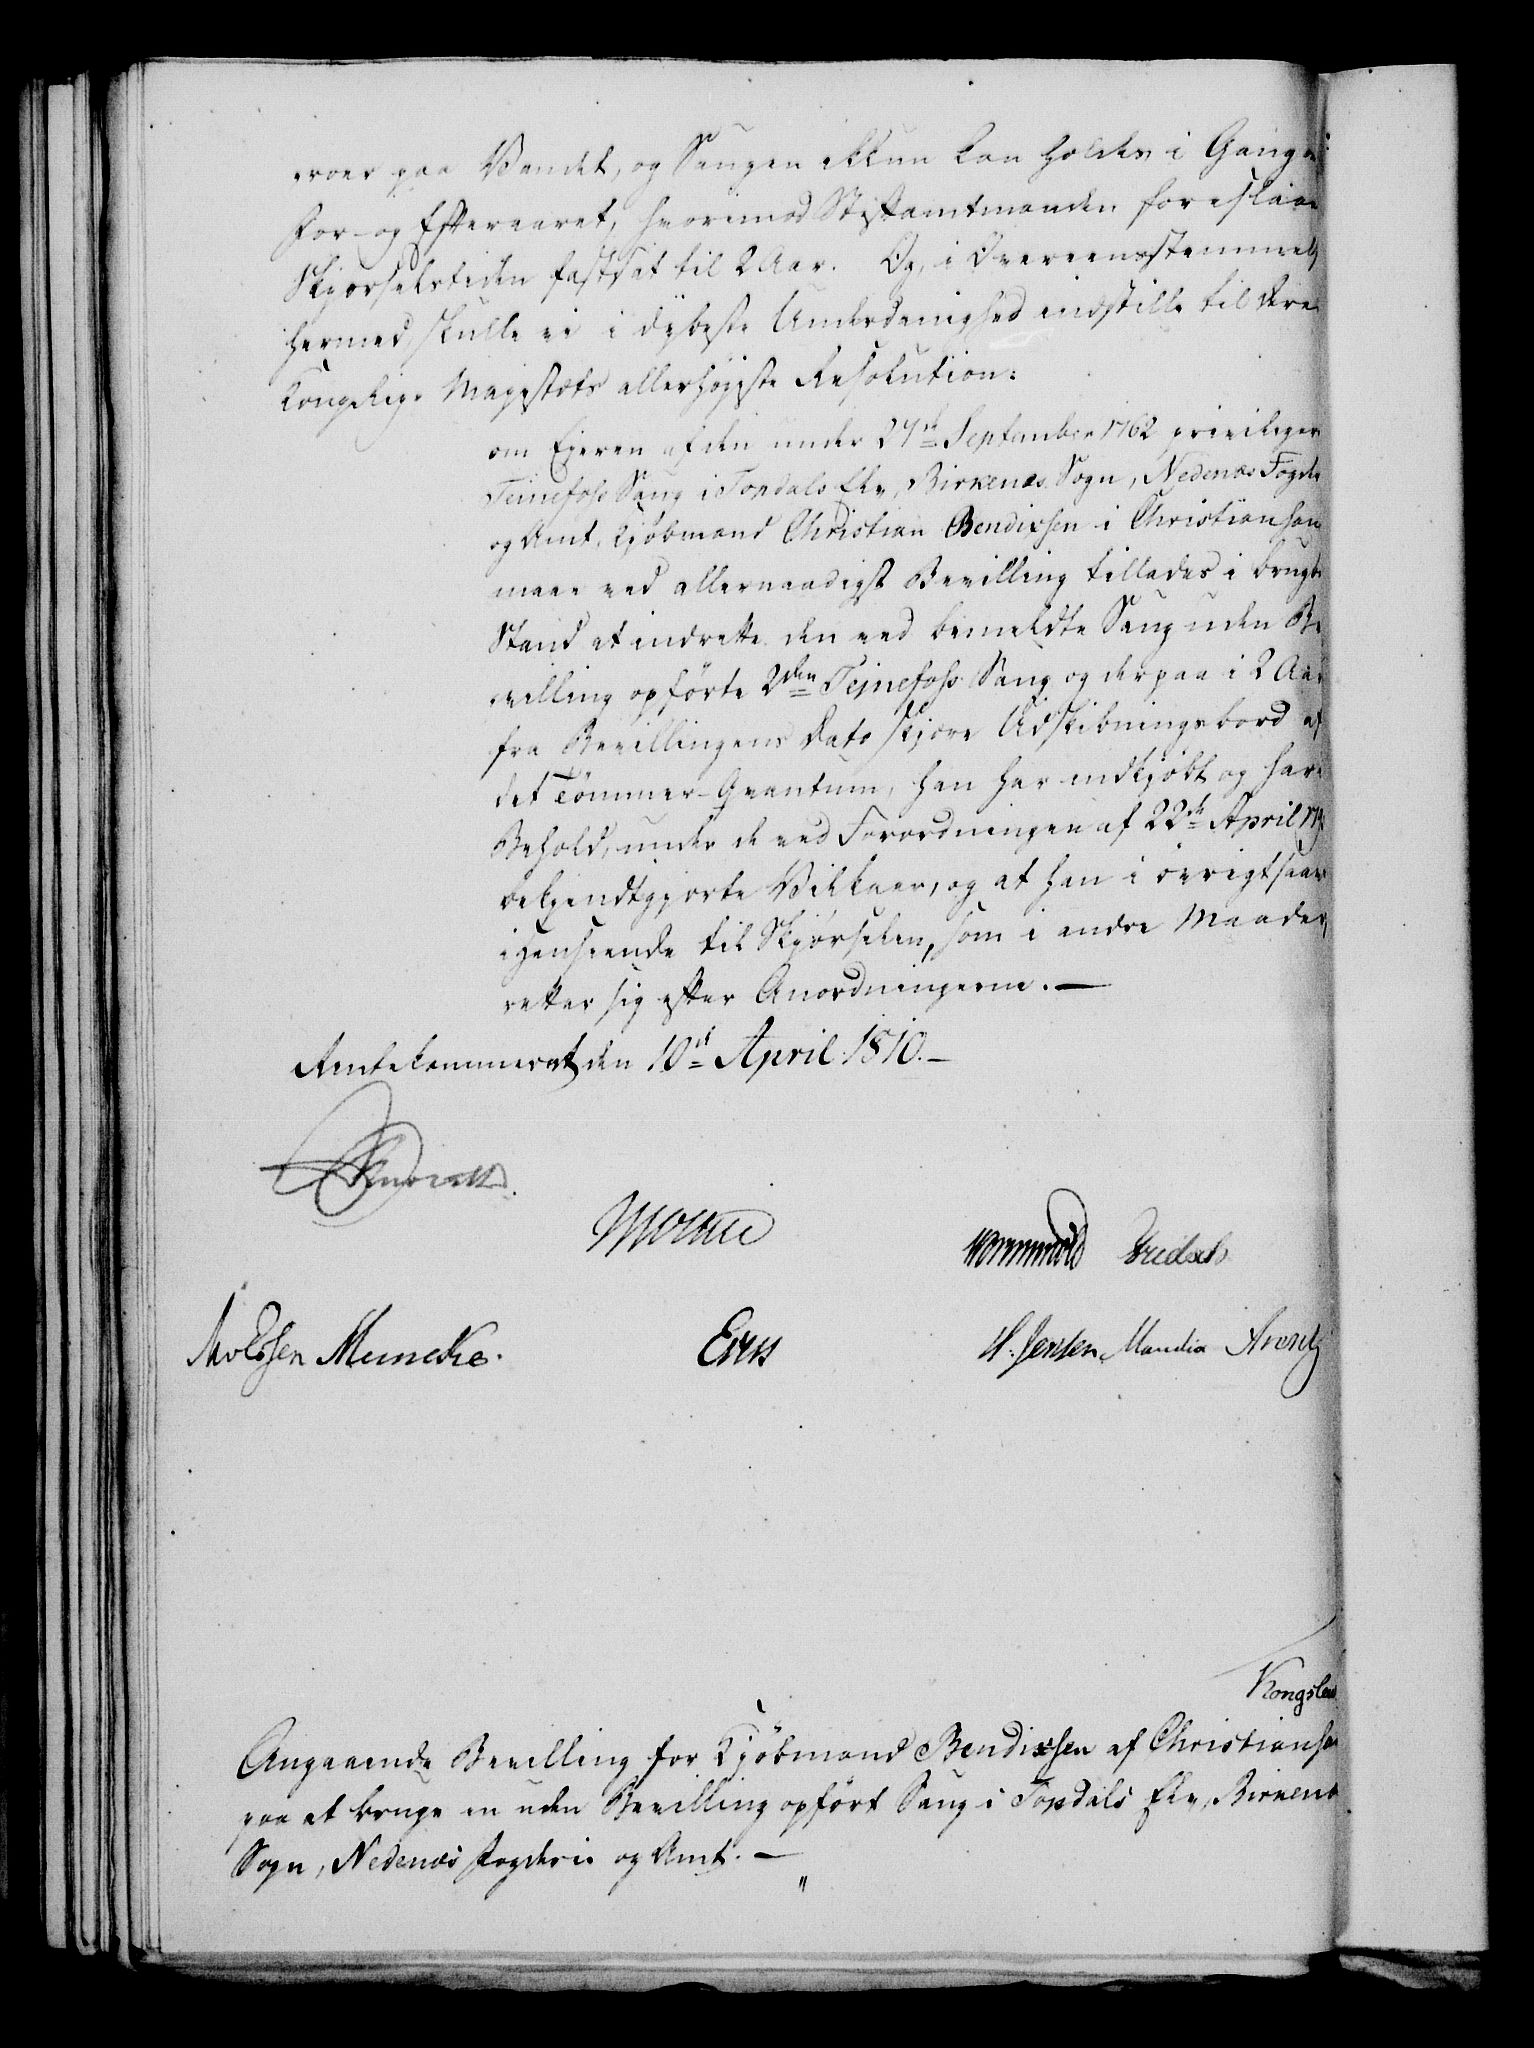 paa Vandet, og Saugen ikkun kan holdes i Gang
For- og Efteraaret, hvorimod Stiftamtmanden foreslaaer
Skjørselstiden fastsat til 2 Aar. Og, i Overeensstemmelse
hermed, skulle vi i dybeste Underdanighed indstille til Deres
Kongelige Majestæts allerhøjeste Resolution:
om Eieren af den under 27de September 1762 privilegere
Teinefoss Saug i Topdals Elv, Birkenæs Sogn, Nedenæs Fogderie
og Amt, Kjøbmand Christian Bendixsen i Christiansan
maae ved allernaadigst Bevilling tillades i brugba
Stand at indrette den ved bemeldte Saug uden Be-
villing opførte 2den Tejnefoss Saug og derpaa i 2 Aar
fra Bevillingens Dato skjære Udskibningsbord af
det Tømmer-Qvantum, han har indkjøbt og har i
Behold, under de ved Forordningen af 22de April 17
bekjendtgjorte Vilkaar, og at han i øvrigt saavel
i Henseende til Skjørselen, som i andre Maader,
retter sig efter Anordningerne. —
Rentekammeret den 10de April 1810. —
Knuth
Wormskiold
Meincke.
H. Jensen. Mandix Arentz
Kongslew
Angaaende Bevilling for Kjøbmand Bendixsen af Christiansa
paa at bruge en uden Bevilling opført Saug i Topdals Elv, Birkenæs
Sogn, Nedenæs Fogderie og Amt. —